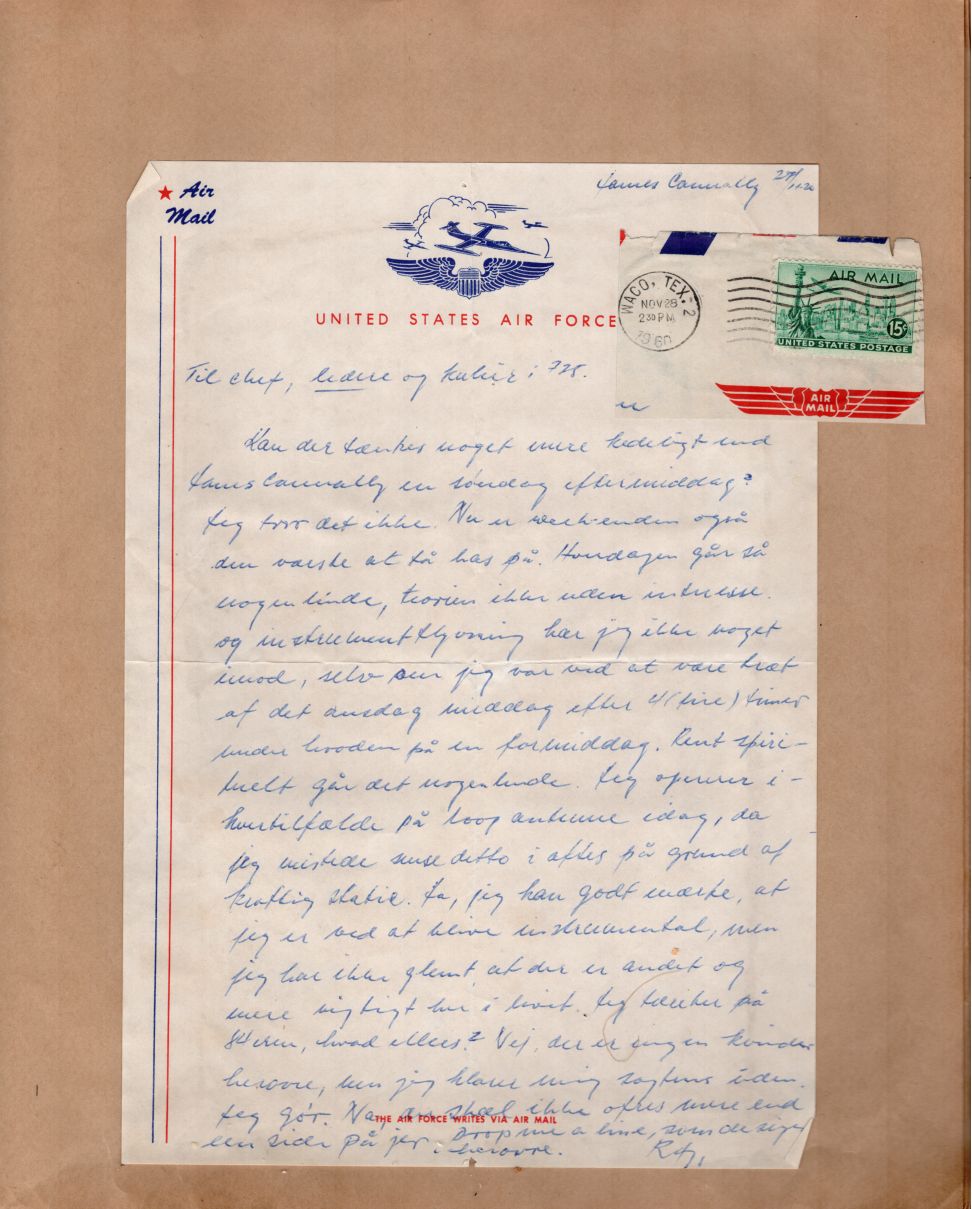 Air
Mail
James Connally 27/11-60
UNITED STATES AIR FORCE
WACO, TEX. 2
NOV 28
2 30 PM
1960
AIR MAIL
15¢
UNITED STATES POSTAGE
AIR
MAIL
Til chef, ledere og kolleger i 725.
Kan der tænkes noget mere kedeligt end
James Connally en søndag eftermiddag?
Jeg tror det ikke. Nu er week-enden også
den værste at få has på. Hverdagen går så
nogenlunde, teorien ikke uden interesse.
og instrumentflyvning har jeg ikke noget
imod, selv om jeg var ved at være træt
af det onsdag middag efter 4 (fire) timer
under hooden på en formiddag. Rent spiri-
tuelt går det nogenlunde. Jeg opererer i-
hvertilfælde på loop antenne idag, da
jeg mistede sense ditto i aftes på grund af
kraftig static. Ja, jeg kan godt mærke, at
jeg er ved at blive instrumental, men
jeg har ikke glemt at der er andet og
mere vigtigt her i livet. Jeg tænker på
84'eren, hvad ellers? Nej, der er ingen kvinder
herovre, men jeg klarer mig sagtens uden.
Jeg gør. Na, skal ikke ofres mere end
THE AIR FORCE WRITES VIA AIR MAIL
een side på jer. Drop me a line, som de siger
herovre.